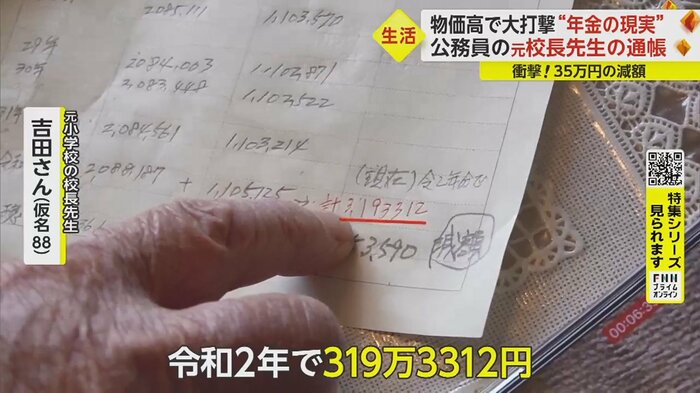 生活
物価高で大打撃“年金の現実”
公務員の元校長先生の通帳
衝撃！35万円の減額
元小学校の校長先生
吉田さん(仮名88)
特集シリーズ
見られます
FNN
プライム
オンライン
29年
1,103,890
30年
2,084,003
1,102,871
2,083,448
1,102,522
2,084,561
1,103,214
2,088,187
(現在)令2年分で
+ 1,105,125 → 計3,193,312
3,590
減額
00:06:3
令和2年で319万3312円